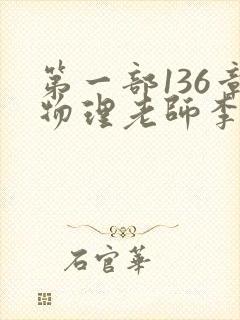 第一部136章
物理老師李
石官華